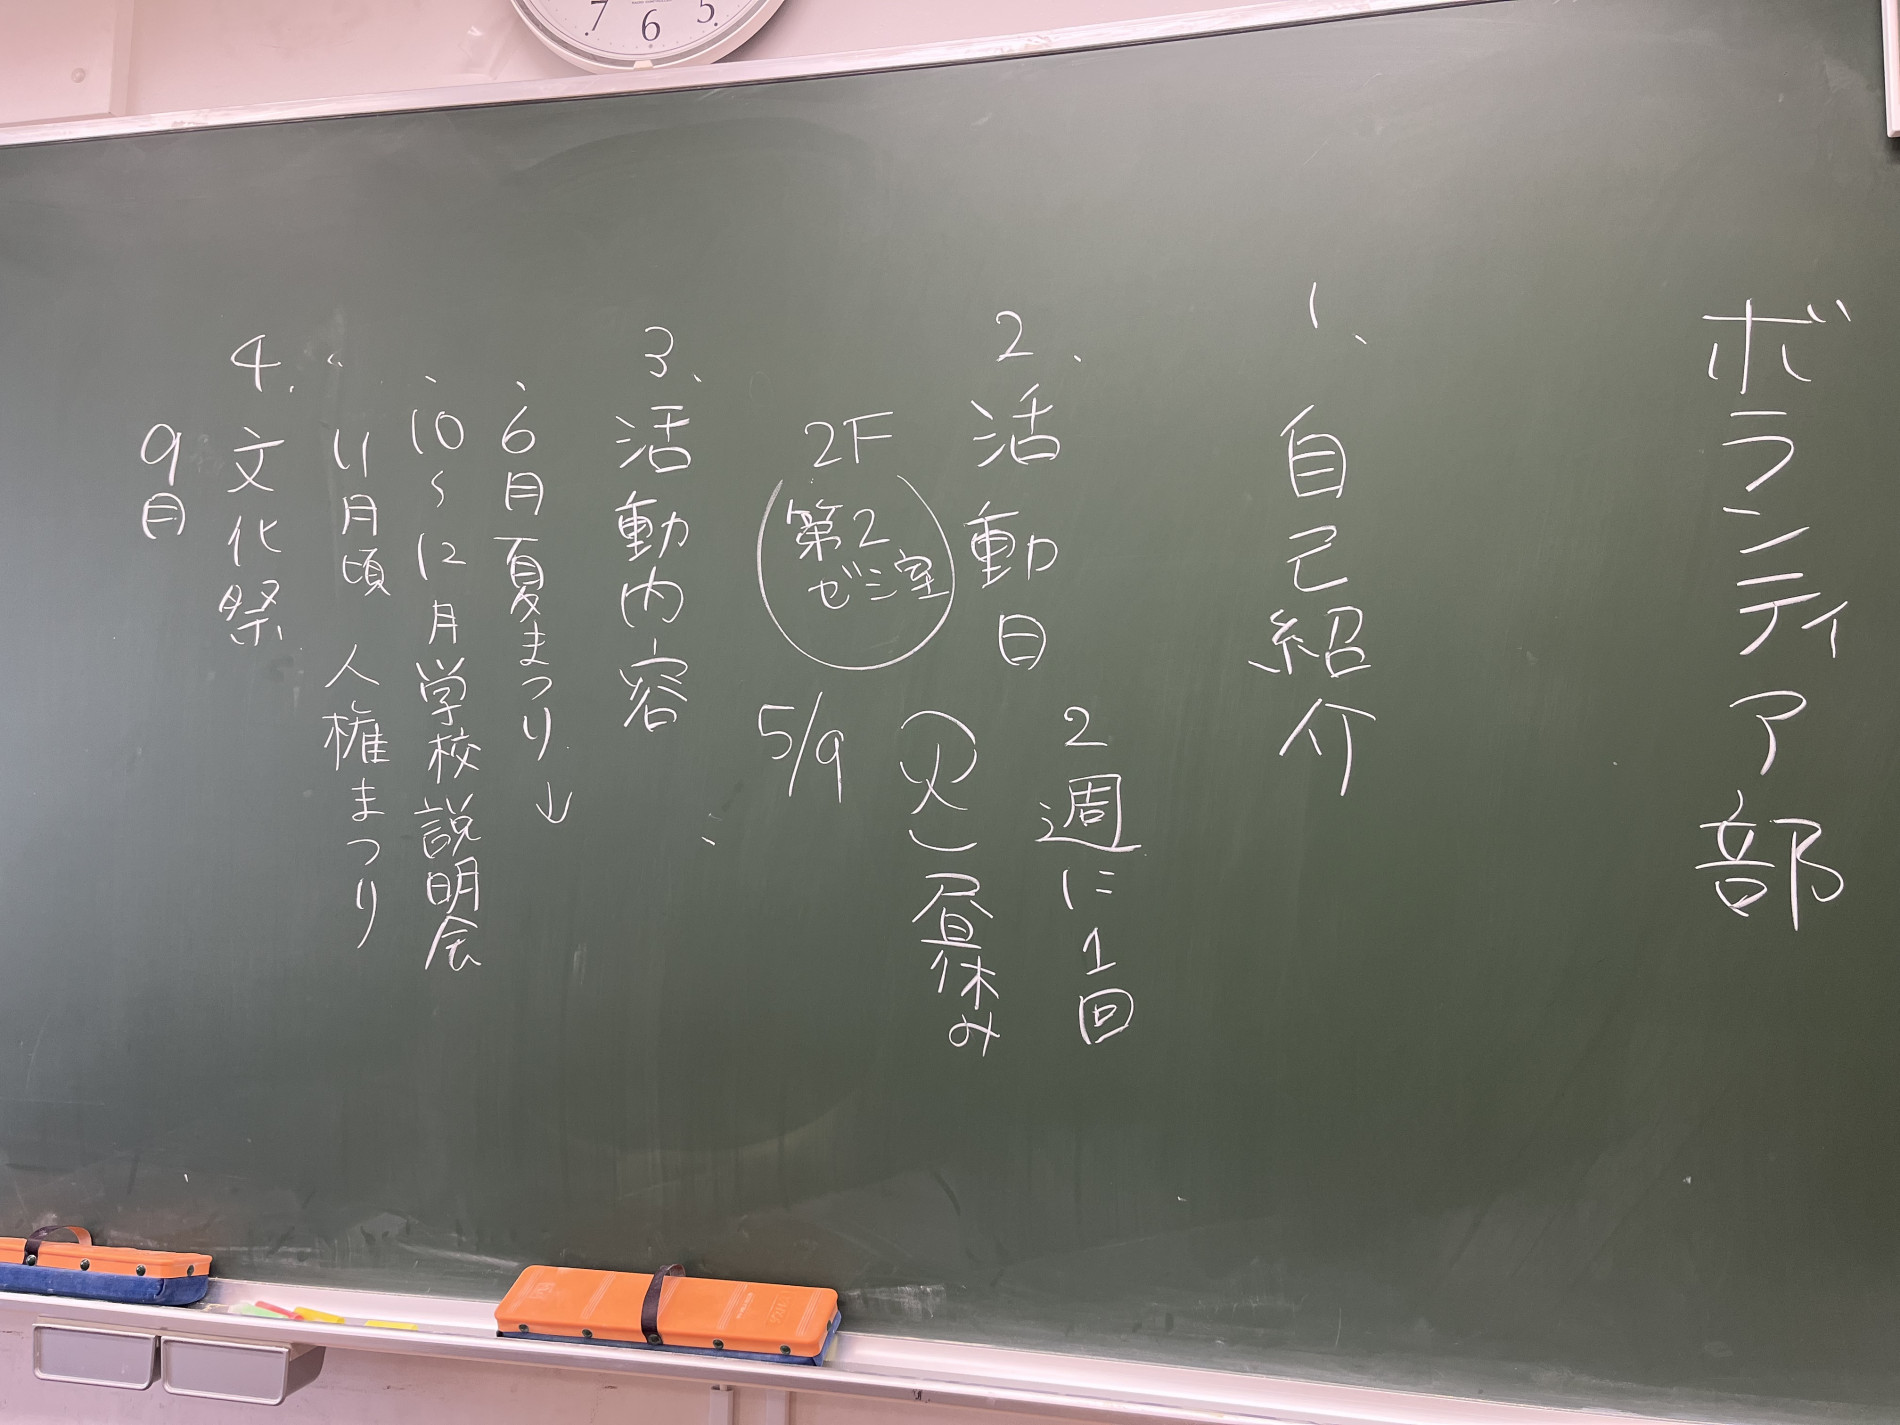 ボランティア部
1、
自己紹介
2、
活動日
2週に1回
(火)昼休み
5/9
2F
第2
ゼミ室
3、
活動内容
、6月夏まつり↓
、10〜12月学校説明会
〃 11月頃 人権まつり
4、
文化祭
9月
7 6 5